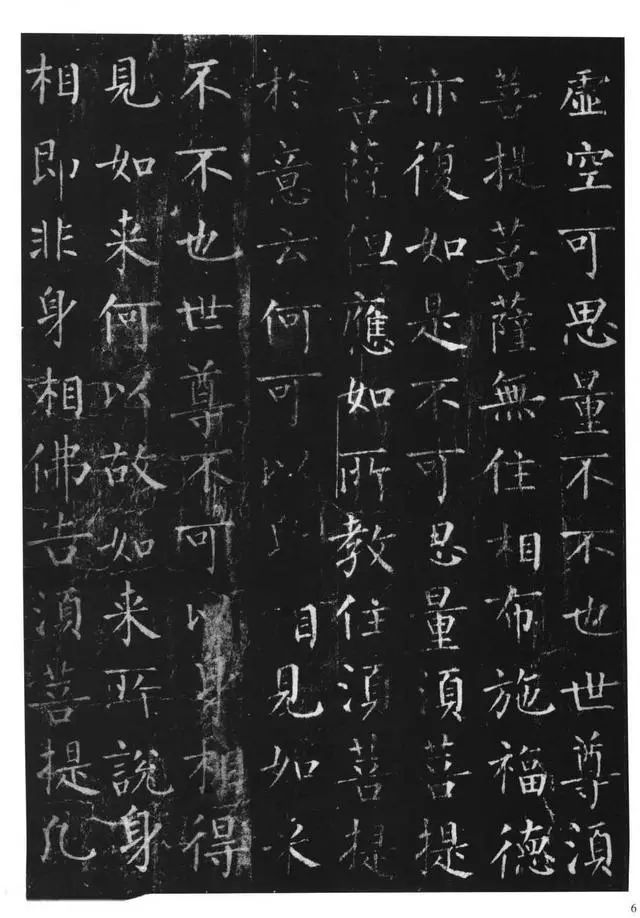 虛空可思量不不也世尊須
菩提菩薩無住相布施福德
亦復如是不可思量須菩提
菩薩但應如所教住須菩提
於意云何可以身相見如来
不不也世尊不可以身相得
見如来何以故如来所說身
相即非身相佛告須菩提凡
6